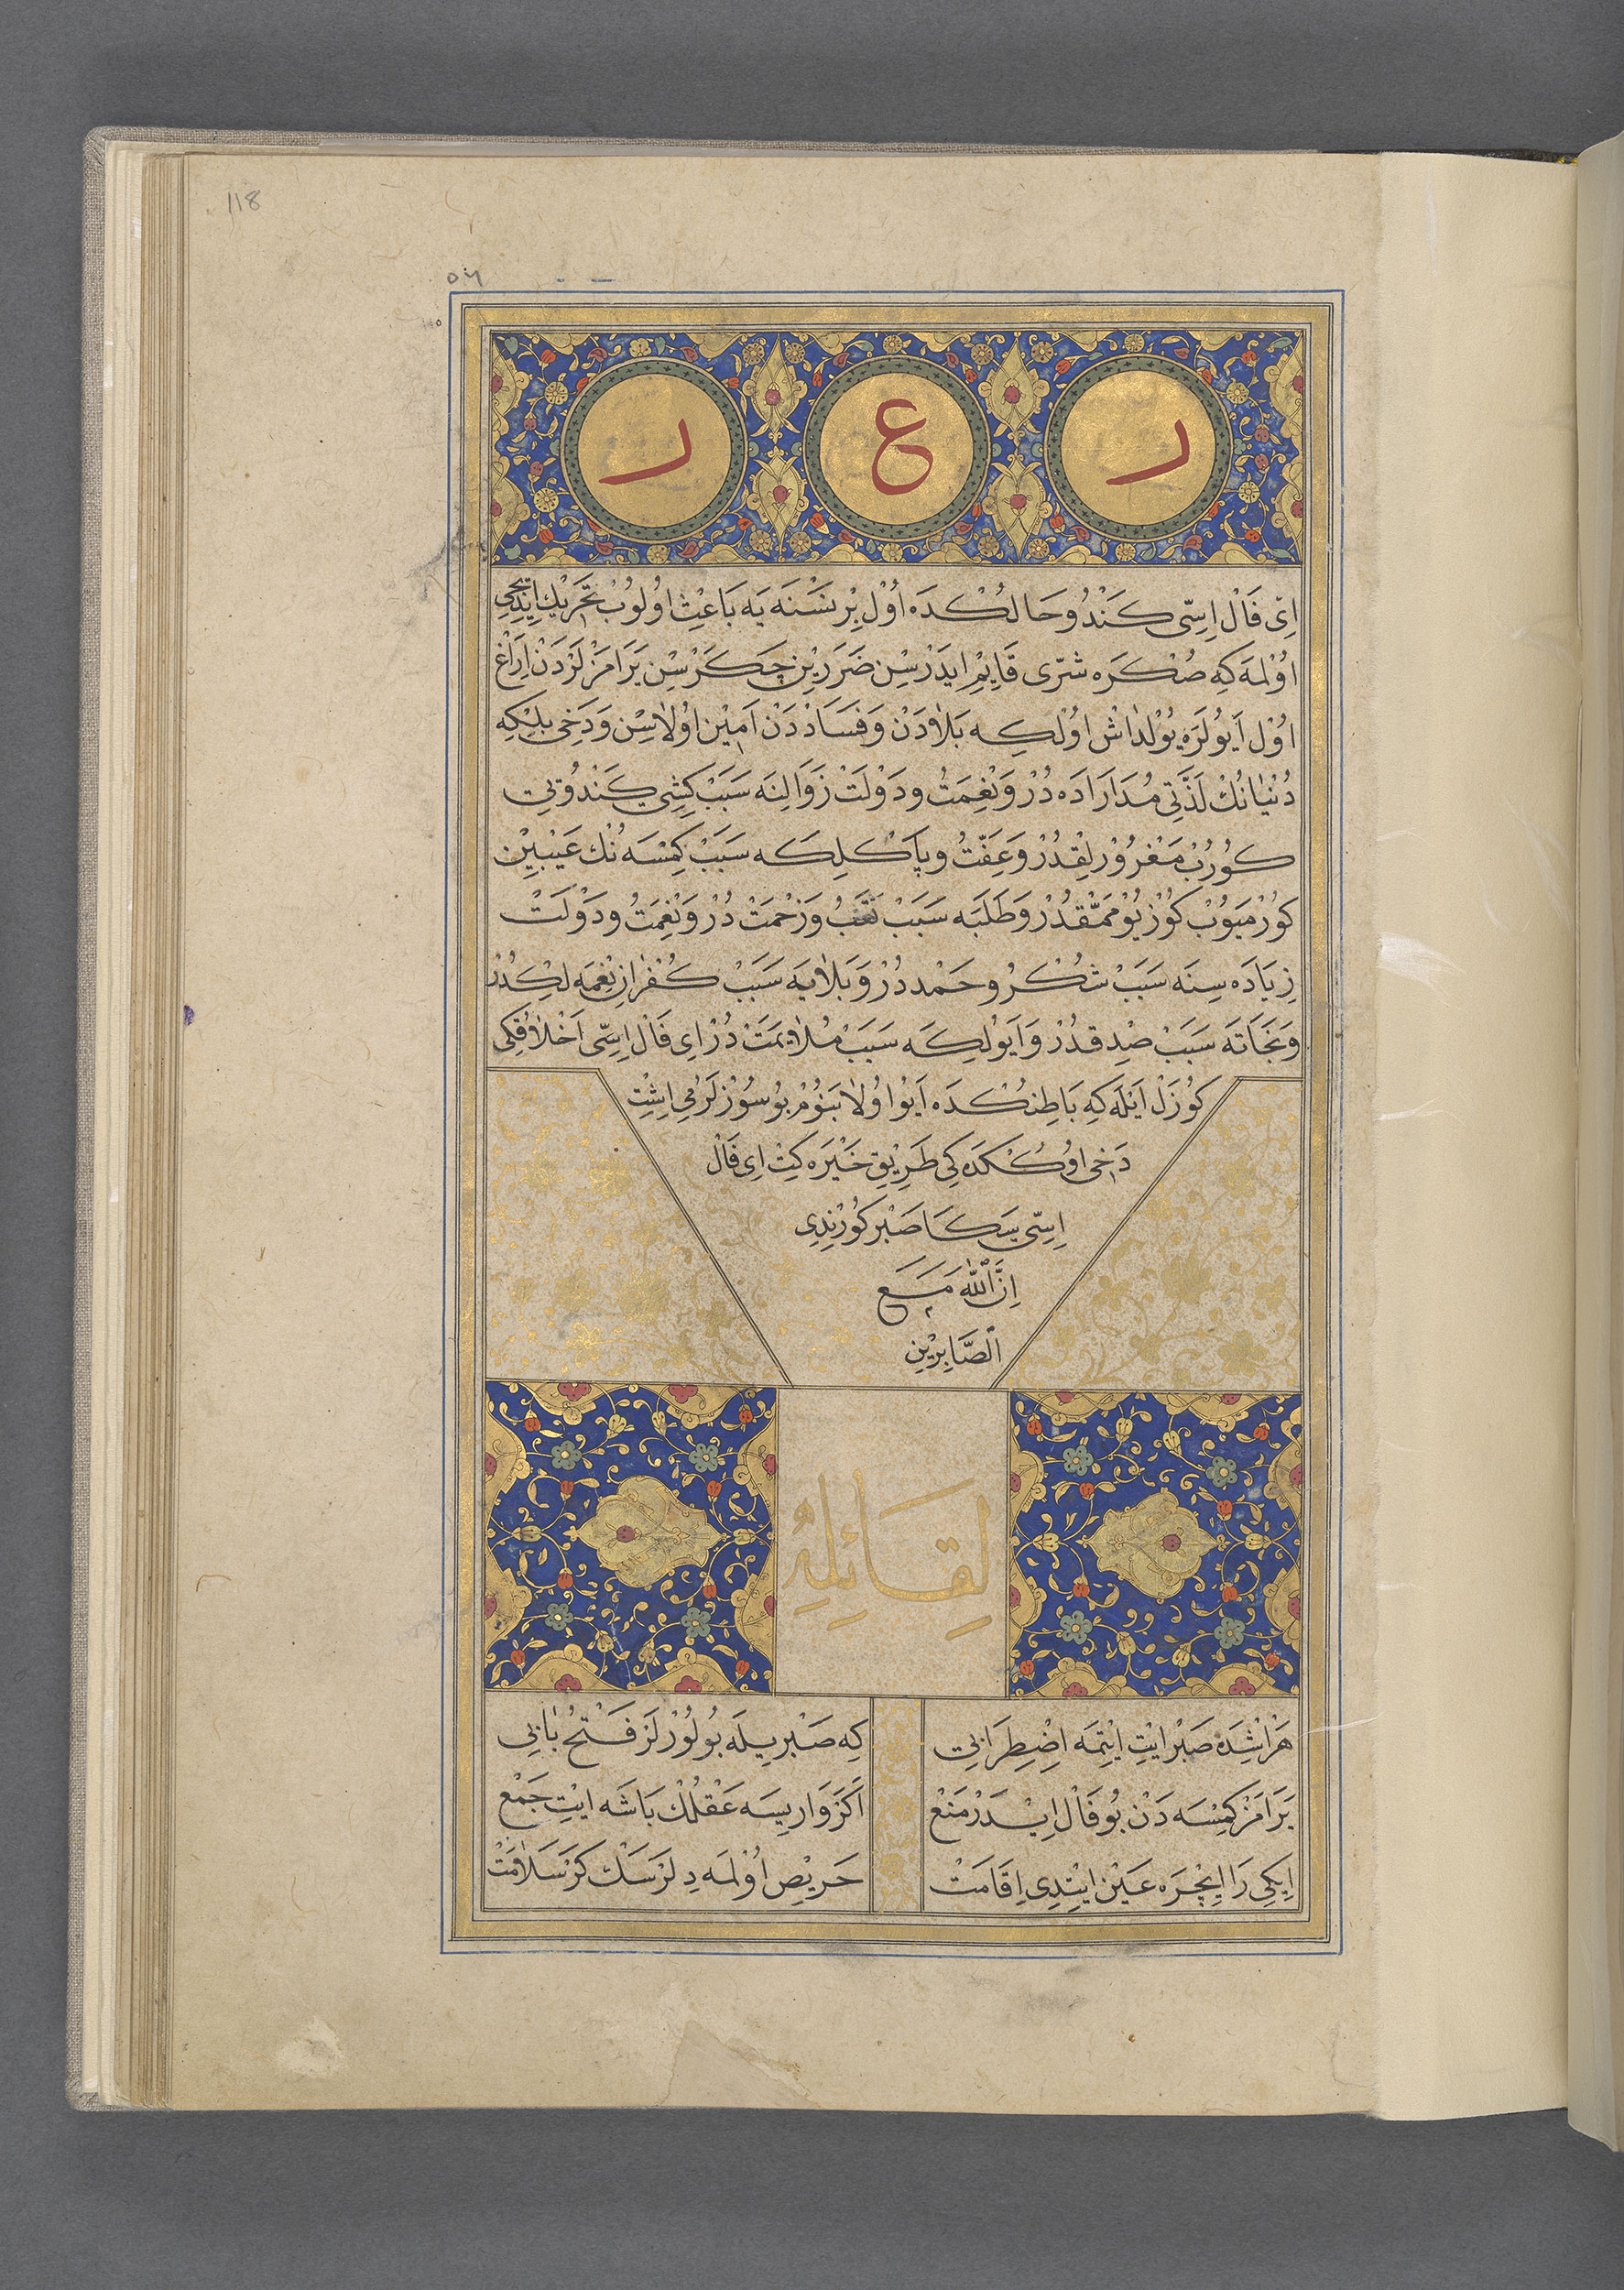 118
٥٦
ر ع ر
اِیْ فَالْ اِسِّی كَنْدُو حَالُكْدَه اُوْل بِرْ نَسْنَه یَه بَاعِثْ اُولُوبْ تَحْرِیْك اِیْدِیْجِی
اُوْلمَه كِه صُكْرَه شَرّی قَایِمْ ایدَرْسِن ضَرَرِیْن چَكَرْسِن یَرَامَزْلَرْدَنْ اِرَاغْ
اُوْل اَیُولَرَه یُوْلْدَاشْ اوُلْكِه بَلَادَنْ وَ فَسَادْدَنْ اَمِیْن اوُلَاسِن وَ دَخِی بِلِیْكِه
دُنْیَانُكْ لَذَّتِی مُدَارَادَه دُرْ وَ نِعْمَتْ و دَوْلَتْ زَوَالِنَه سَبَبْ كِشِی كَنْدُوُیِی
كوُرُبْ مَغْرُوْرلِقْدُرْ وَ عِفَّتْ و پَاكْلِكَه سَبَبْ كِمْسَه نُكْ عَیْبِیْن
كوُرْمَیوُبْ كوُزْ یوُمْمَقْدُرْ وَ طَلَبَه سَبَبْ تَعَبْ وَ زَحْمَتْ دُرْ وَ نِعْمَتْ و دَوْلَتْ
زِیَادَه سِنَه سَبَبْ شُكْر و حَمْد دُرْ وَ بَلَایَه سَبَبْ كُفْرَانِ نِعْمَه لِكْدُرْ
وَ نَجَاتَه سَبَبْ صِدِقْدُرْ وَ اَیوُلِكَه سَبَبْ مُلَایَمَتْ دُرْ اِی فَالْ اِسِّی اَخْلَاقُكِی
كوُزَلْ اَیْلَه كِه بَاطِنُكْدَه اَیوُ اوُلَا بَنوُمْ بوُ سوُزْلَرُمِی اِشِتْ
دَخِی اوُكُكْدَه كِی طَرِیْقِ خَیْرَه كِتْ اِی فَالْ
اِسِّی سَكَا صَبْر كوُرُنِدِی
اِنَّ ٱللّٰهَ مَعَ
ٱلصَّابِرِیْن
لِقَائِلِهِ
هَرْ اِشِدَه صَبْرْ ایْتِ ایْتْمَه اِضْطِرَابِی
كِه صَبْر یِلَه بوُلوُرْلَرْ فَتْحِ بَابِی
یَرَامَزْ كِمْسَه دَنْ بوُ فَالْ اِیْدَرْ مَنْعْ
اَكَرْ وَارِیسَه عَقْلُكْ بَاشَه ایْتِ جَمْعْ
اِیكِی رَا اِیچْرَه عَیْن ایْتْدِی اِقَامَتْ
حَرِیْص اوُلْمَه دِلَرْسَكْ كَرْ سَلَامَتْ